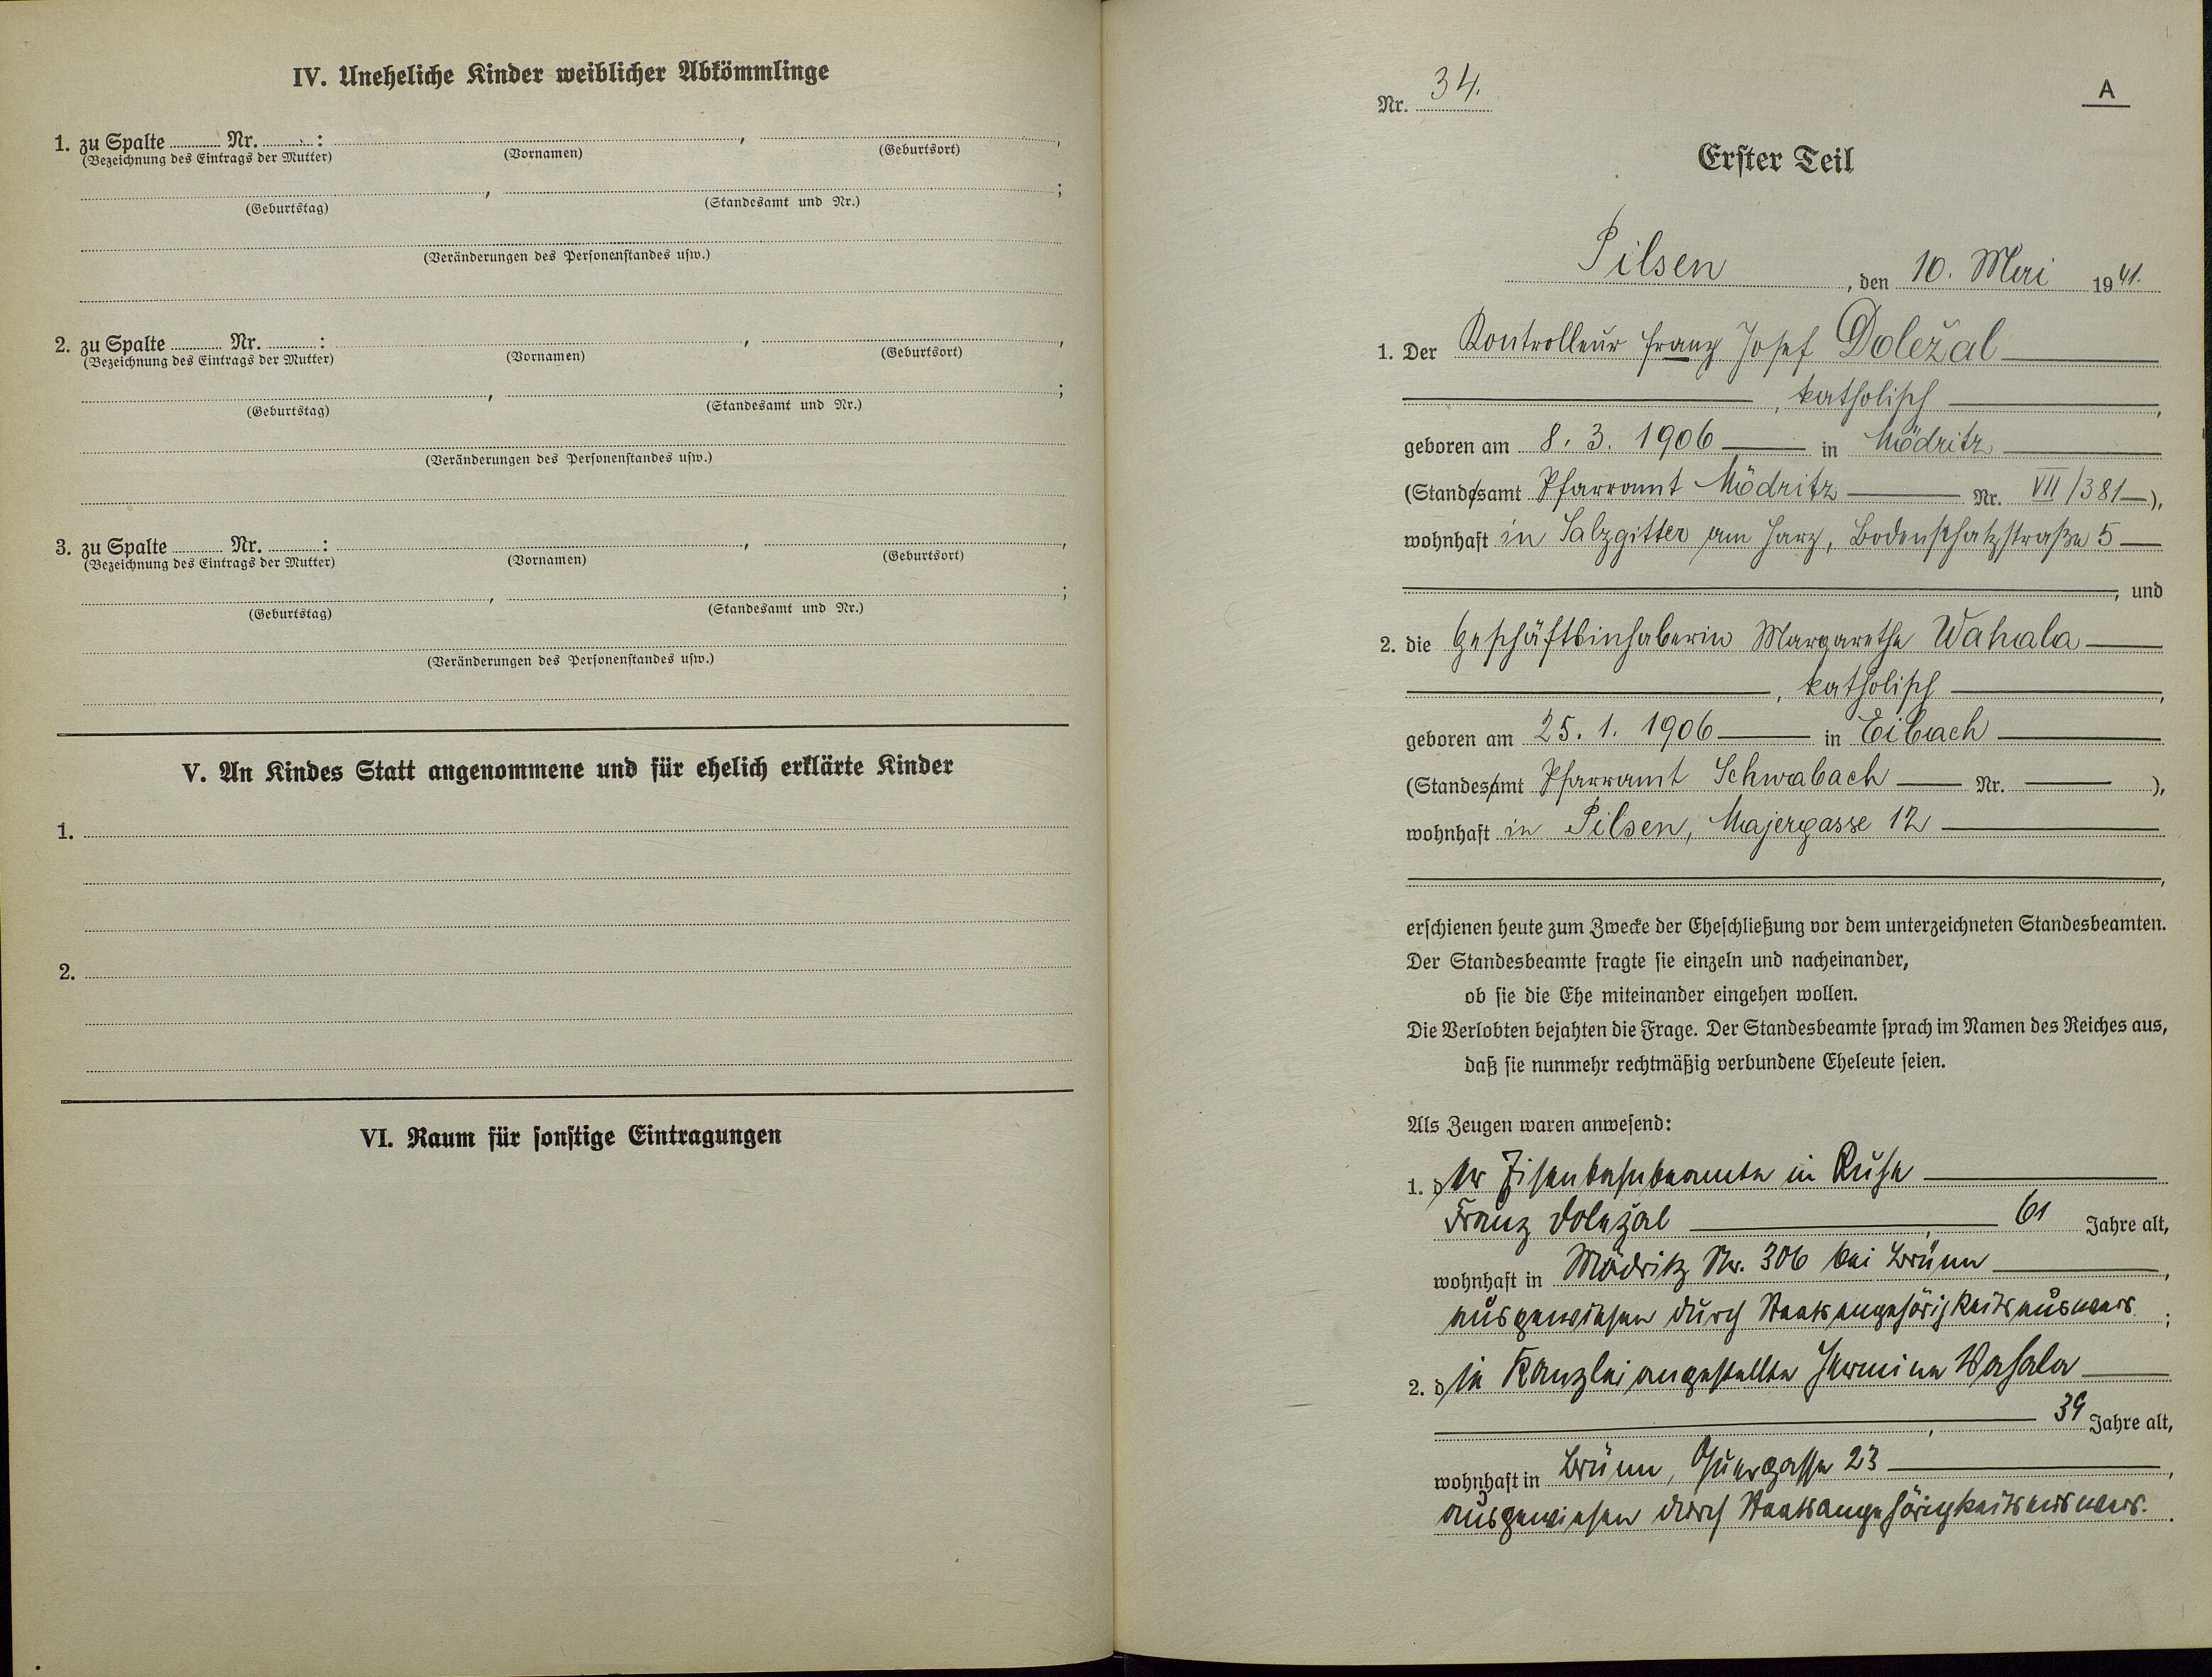 IV. Uneheliche Kinder weiblicher Abkömmlinge
1. zu Spalte ........ Nr. ........ :
(Bezeichnung des Eintrags der Mutter) (Vornamen) (Geburtsort)
(Geburtstag) (Standesamt und Nr.)
(Veränderungen des Personenstandes usw.)
2. zu Spalte ........ Nr. ........ :
(Bezeichnung des Eintrags der Mutter) (Vornamen) (Geburtsort)
(Geburtstag) (Standesamt und Nr.)
(Veränderungen des Personenstandes usw.)
3. zu Spalte ........ Nr. ........ :
(Bezeichnung des Eintrags der Mutter) (Vornamen) (Geburtsort)
(Geburtstag) (Standesamt und Nr.)
(Veränderungen des Personenstandes usw.)
V. An Kindes Statt angenommene und für ehelich erklärte Kinder
1.
2.
VI. Raum für sonstige Eintragungen
Nr. 34.
A
Erster Teil
Pilsen, den 10. Mai 1941.
1. Der Kontrolleur Franz Josef Doležal
, katholisch,
geboren am 8. 3. 1906 in Mödritz
(Standesamt Pfarramt Mödritz Nr. VII/381),
wohnhaft in Salzgitter am Harz, Bodenschatzstraße 5
, und
2. die Geschäftsinhaberin Margarethe Wahala
, katholisch,
geboren am 25. 1. 1906 in Eibach
(Standesamt Pfarramt Schwabach Nr. ),
wohnhaft in Pilsen, Majergasse 12
,
erschienen heute zum Zwecke der Eheschließung vor dem unterzeichneten Standesbeamten.
Der Standesbeamte fragte sie einzeln und nacheinander,
ob sie die Ehe miteinander eingehen wollen.
Die Verlobten bejahten die Frage. Der Standesbeamte sprach im Namen des Reiches aus,
daß sie nunmehr rechtmäßig verbundene Eheleute seien.
Als Zeugen waren anwesend:
1. der Eisenbahnbeamte in Ruhe
Franz Doležal, 61 Jahre alt,
wohnhaft in Mödritz Nr. 306 bei Brünn,
ausgewiesen durch Staatsangehörigkeitsausweis;
2. die Kanzleiangestellte Hermine Wahala
, 39 Jahre alt,
wohnhaft in Brünn, 23,
ausgewiesen durch Staatsangehörigkeitsausweis.